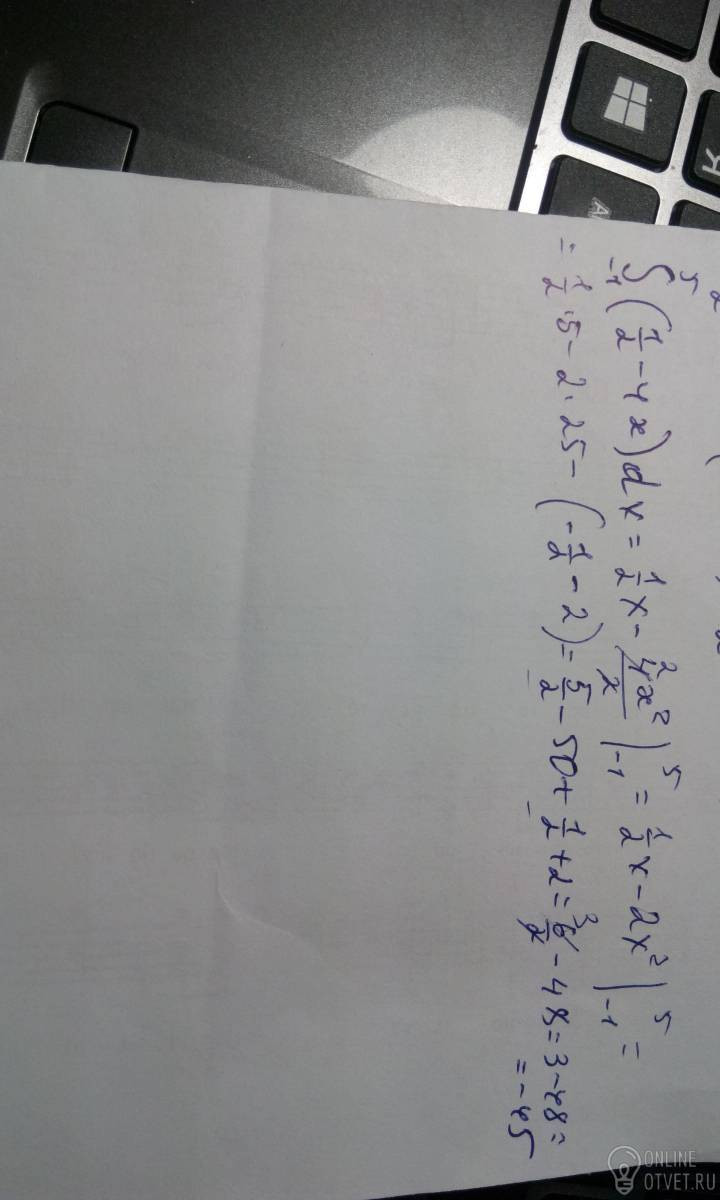 ∫₋₁⁵ (1/2 - 4x)dx = 1/2 x - 4x²/2 |₋₁⁵ = 1/2 x - 2x² |₋₁⁵ =
= 1/2 · 5 - 2 · 25 - (- 1/2 - 2) = 5/2 - 50 + 1/2 + 2 = 6/2 - 48 = 3 - 48 =
= -45
ONLINE
OTVET.RU